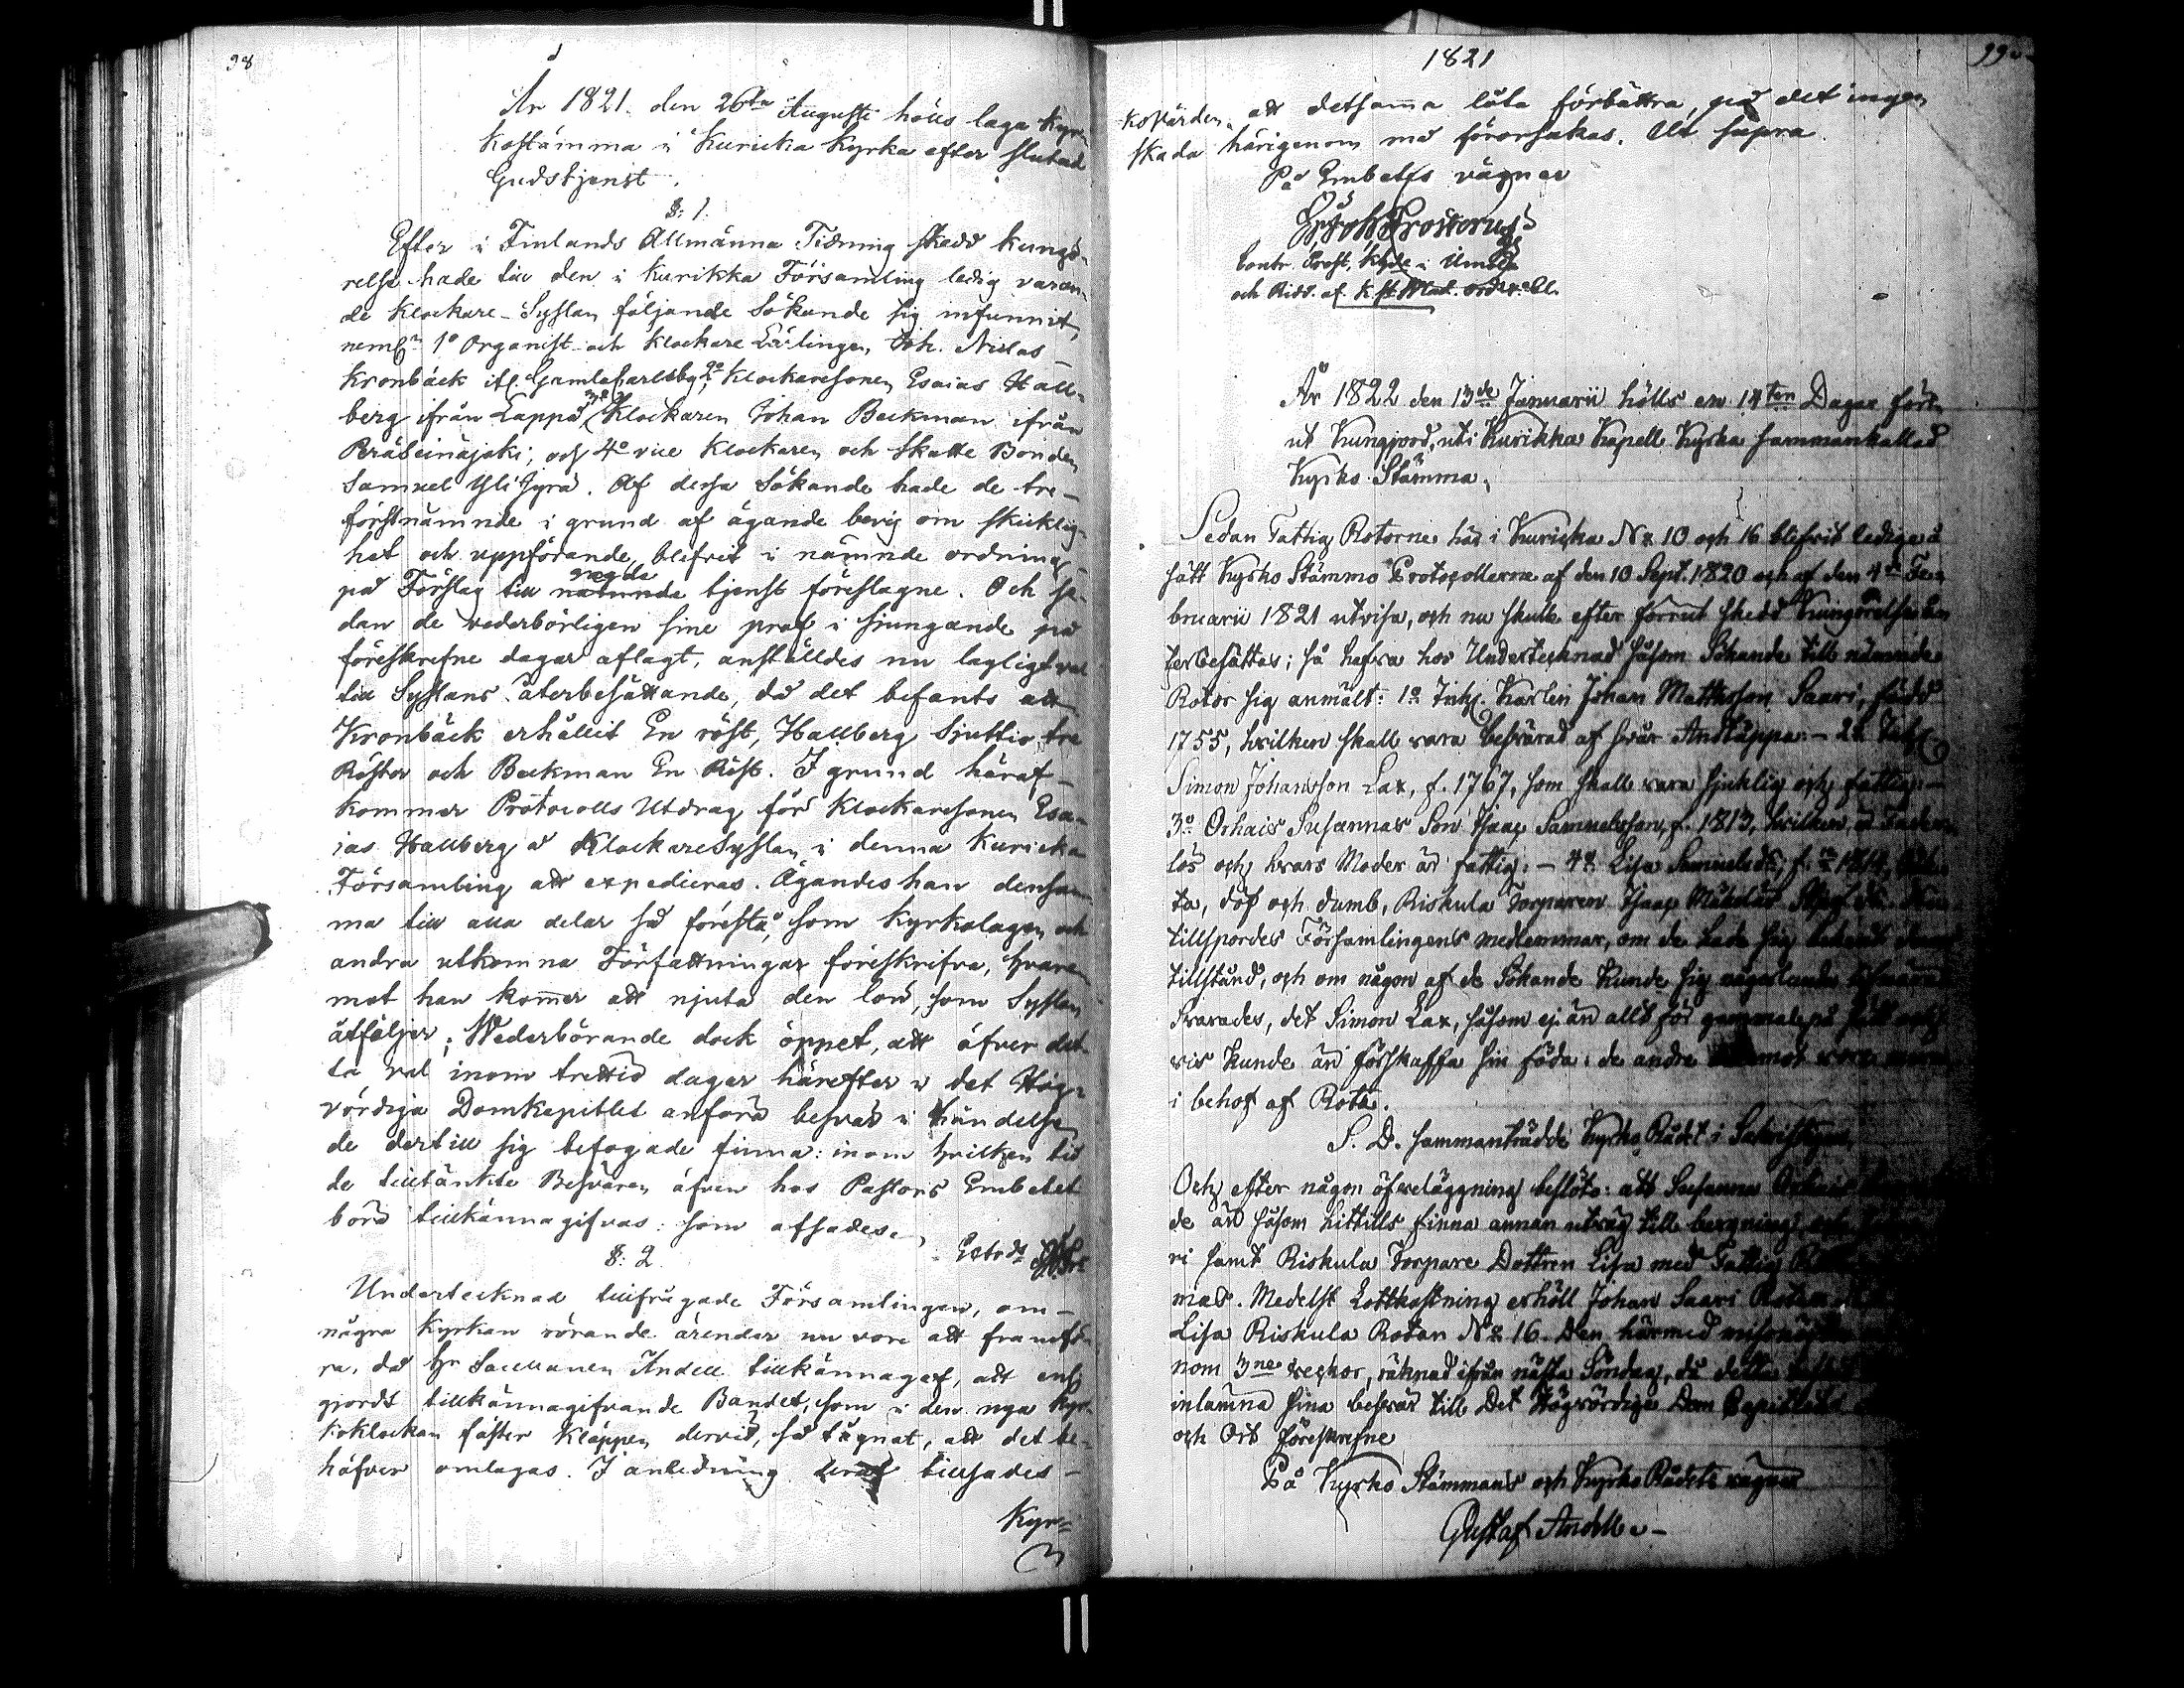 98
År 1821. den 26ta Augusti hölls laga Kyr-
kostämma i Kuricka Kyrka efter slutad
Gudstjenst.
§: 1.
Efter i Finlands Allmänna Tidning skedd kungö-
relse hade till den i Kurikka Församling ledig varan-
de Klockare-Sysslan följande Sökande sig infunnit,
neml. 1o Organist och Klockare Lärlingen Joh. Niclas
Kronbäck ifr. Gamlakarleby, 2o Klockaresonen Esaias Hall-
berg ifrån Lappo, 3o Klockaren Johan Beckman ifrån
Peräseinäjoki, och 4o vice Klockaren och Skatte Bonden
Samuel Yli Jyrä. Af dessa Sökande hade de tre
förstnämnde i grund af ägande bevis om skicklig-
het och uppförande blifvit i nämnde ordning
på Förslag till sagde tjenst föreslagne. Och se-
dan de vederbörligen sine prof i sjungande på
föreskrefne dagar aflagt, anställdes nu lagligt val
till Sysslans återbesättande, då det befants att
Kronbäck erhållit En röst, Hallberg Sjuttio tre
Röster och Beckman En Röst. I grund häraf
kommer Protocolls Utdrag för Klockaresonen Esa-
ias Hallberg å KlockareSysslan i denna Kuricka
Församling att expedieras. Ägandes han densam-
ma till alla delar så förestå, som Kyrkolagen och
andra utkomna Författningar föreskrifva, hvare-
mot han kommer att njuta den lön, som Sysslan
åtföljer; Wederbörande dock öppet, att öfver det-
ta val inom trettio dagar härefter i det Hög-
vördiga Domkapitlet anföra besvär i händelse
de dertill sig befogade finna: inom hvilken tid
de tilltänkte Besvären äfven hos Pastors Embetet
böra tillkännagifvas: som afsades.
§: 2.
Undertecknad tillfrågade Församlingen, om
några Kyrkan rörande ärender nu vore att framfö-
ra, då Hr Sacellanen Andell tillkännagaf, att
gjordt tillkännagifvande Bandet, som i den nya Kyr-
koklockan fäster Kläppen dervid, så tågnat, att det be-
höfver omlagas. I anledning deraf tillsades
Kyr-
1821
99
kovärden att detsamma låta förbättra, på det ingen
skada härigenom må förorsakas. Ut supra
På Embetets vägnar
Contr. Prost, Khde i Ilmola
och Ridd. af K. St Wlad. Ord.
År 1822 den 13de Januarii hölls en 14ten Dagar för-
ut Kungjord, uti Kurikka Kapell Kyrka sammankallad
Kyrko Stämma.
Sedan Fattig Rotorne här i Kuricka No 10 och 16 blifvit lediga å
sätt Kyrko Stämmo Protocollerne af den 10 Sept. 1820 och af den 4de Fe-
bruarii 1821 utvisa, och nu skulle efter förrut skedd Kungörelse åter
terbesättas; så hafva hos Undertecknad såsom Sökande till nämnde
Rotor sig anmält: 1o Inhs. Karlen Johan Mattsson Saari, född
1755, hvilken skall vara besvärad af svår Andtäppa. - 2o Inhs.
Simon Johansson Lax, f. 1767, som skall vara sjuklig och fattig. -
3o Orhais Susannas Son Isaac Samuelsson, f. 1813, hvilken är Fader-
lös och hvars Moder är fattig. - 4o Lisa Samuelsdr, f.
ta, döf och dumb, Riskula Torparen Isaac
tillspordes Församlingens medlemmar, om de hade sig
tillstånd, och om någon af de Sökande kunde sig någorlunda
Svarades, det Simon Lax, såsom ej än allt för gammal, på
vis kunde än förskaffa sin föda: de andre
i behof af Rote.
S. D. sammanträdde Kyrko Rådet i Sakristigan,
Och efter någon öfverläggning beslöts: att Susanna
de än såsom hittills finna annan utväg till bergning
ri samt Riskula Torpare Dottren Lisa med Fattig
nas. Medelst Lottkastning erhöll Johan Saari Rotan
Lisa Riskula Rotan No 16. Den härmed missnöjde
nom 3ne veckor, räknad ifrån nästa Söndag, då detta
inlämna sina besvär till Det Högvördiga Dom Capitlet
och Ort föreskrefne
På Kyrko Stämmans och Kyrko Rådets vägnar
Gustaf Andell